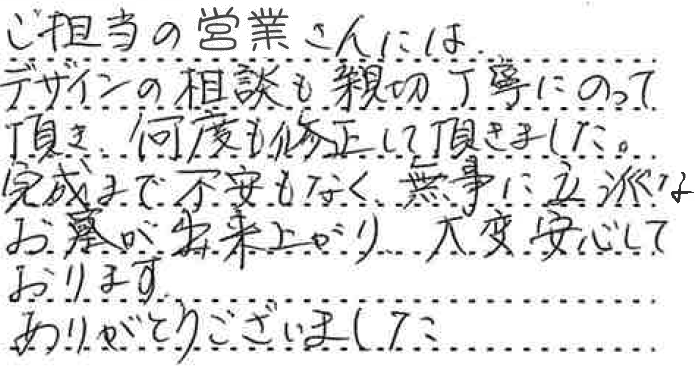 ご担当の営業さんには、
デザインの相談も親切丁寧にのって
頂き、何度も修正して頂きました。
完成まで不安もなく、無事に立派な
お墓が出来上がり、大変安心して
おります。
ありがとうございました